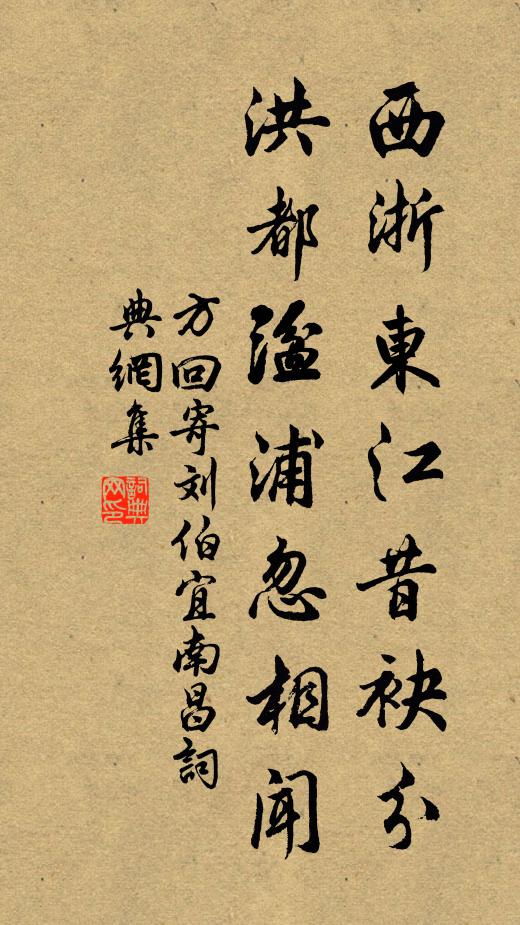 西浙東江昔袂分
洪都湓浦忽相聞
方回寄刘伯宜南昌詞
典網集
詞典网印